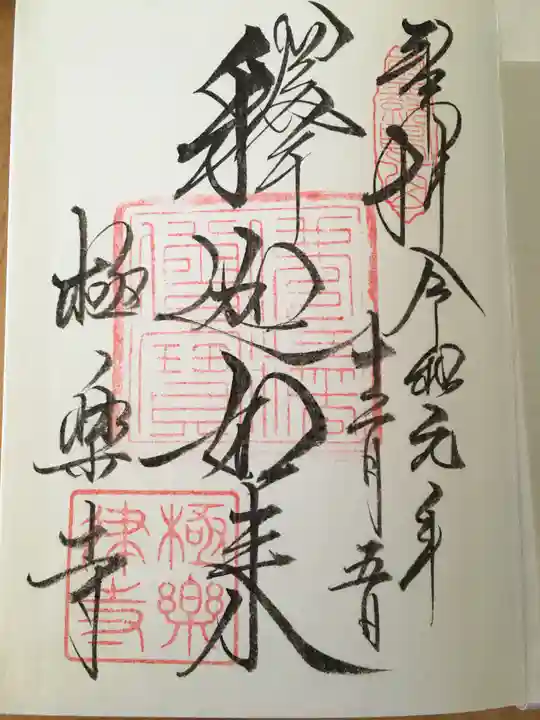 奉拝
令和元年
十二月五日
釋迦如来
極楽寺
極樂律寺